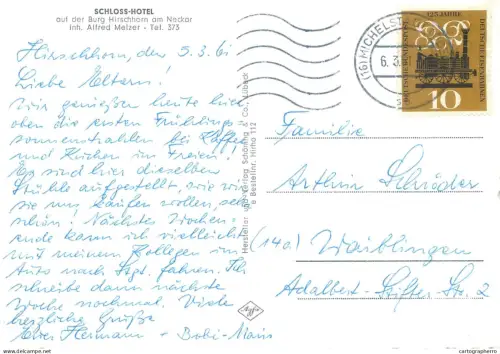 SCHLOSS-HOTEL
auf der Burg Hirschhorn am Neckar
Inh. Alfred Melzer - Tel. 373
Hirschhorn, den 5.3.61
Liebe Eltern!
Wir genießen heute hier
oben die ersten Frühlings-
sonnenstrahlen bei Kaffee
und Kuchen im Freien!
Es sind hier dieselben
Stühle aufgestellt, wie wir
sie uns kaufen wollen, sehr
schön! Nächstes Wochen-
ende kann ich vielleicht
mit meinem Kollegen im
Auto nach Stgt. fahren. Ich
schreibe dann nächste
Woche nochmal. Viele
herzliche Grüße
Hermann -
Hersteller und Verlag Schöning & Co., Lübeck
Bestellnr. Hirho 112
Agfa
(16) MICHELST
6.3.
125 JAHRE
DEUTSCHE EISENBAHNEN
DEUTSCHE BUNDESPOST
10
Familie
Arthur Schröder
(14a) Waiblingen
Adalbert-Stifter-Str. 2
cartographerro | All-colectors.com